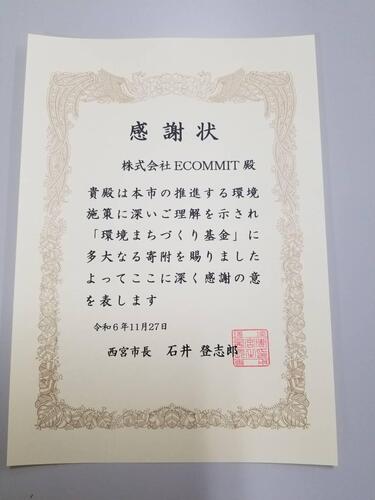 感謝状
株式会社 ECOMMIT 殿
貴殿は本市の推進する環境
施策に深いご理解を示され
「環境まちづくり基金」に
多大なる寄附を賜りました
よってここに深く感謝の意
を表します
令和6年11月27日
西宮市長 石井 登志郎